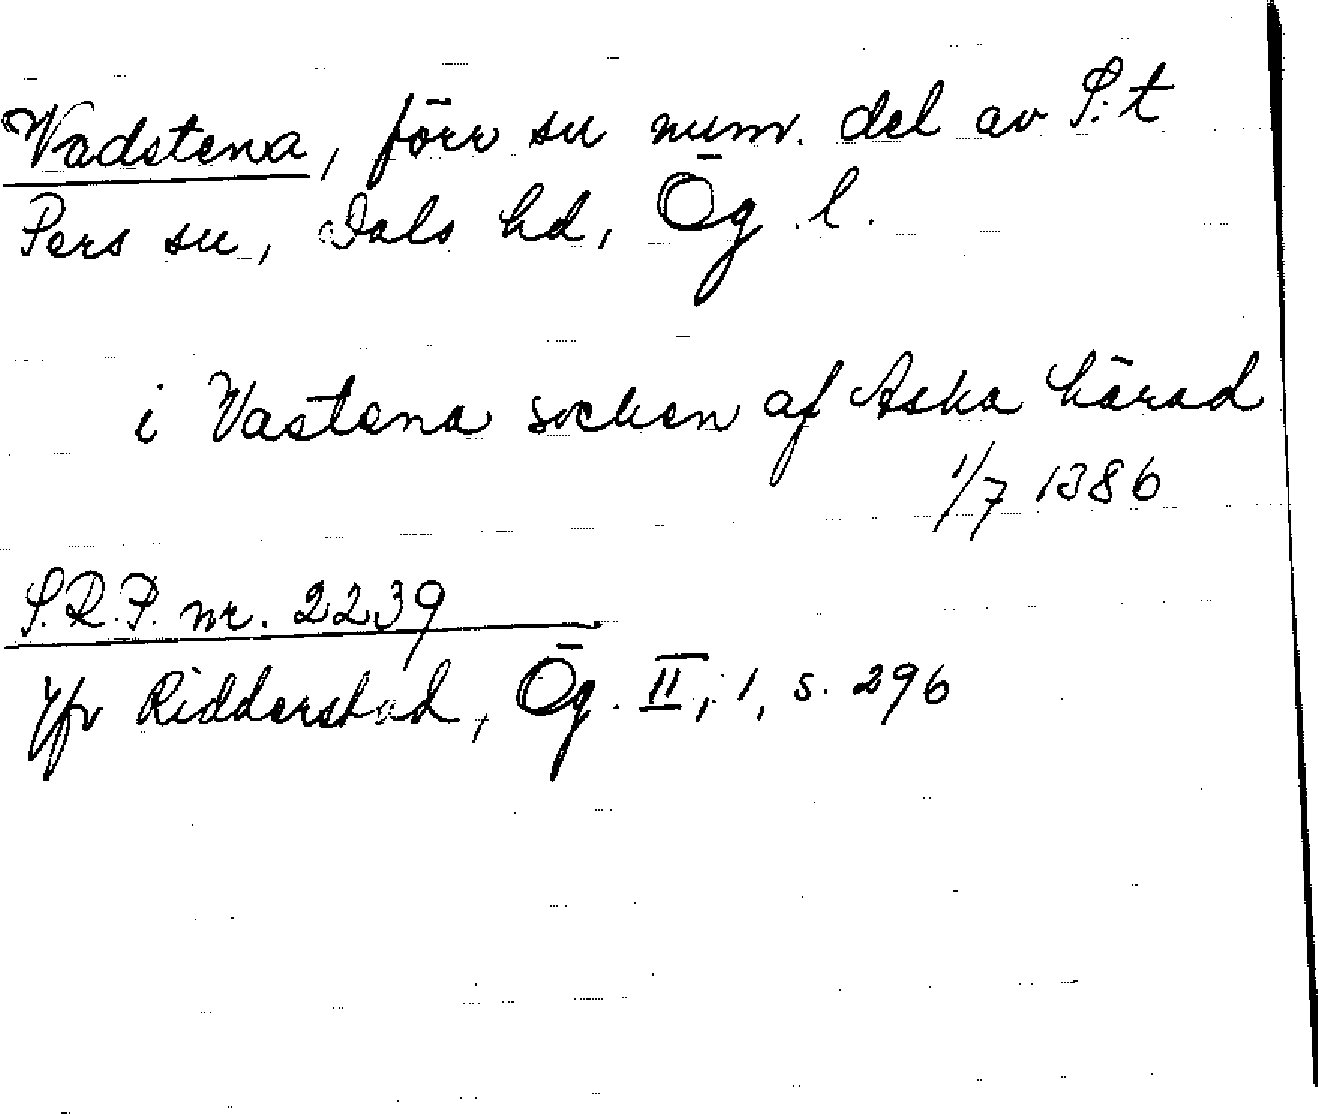 Vadstena, förr sn numr. del av S:t
Pers sn, Dals hd, Ög l.
i Vastena socken af Aska härad
1/7 1386
S.R.P. nr. 2239
Jfr Ridderstad, Ög. II, 1, s. 296